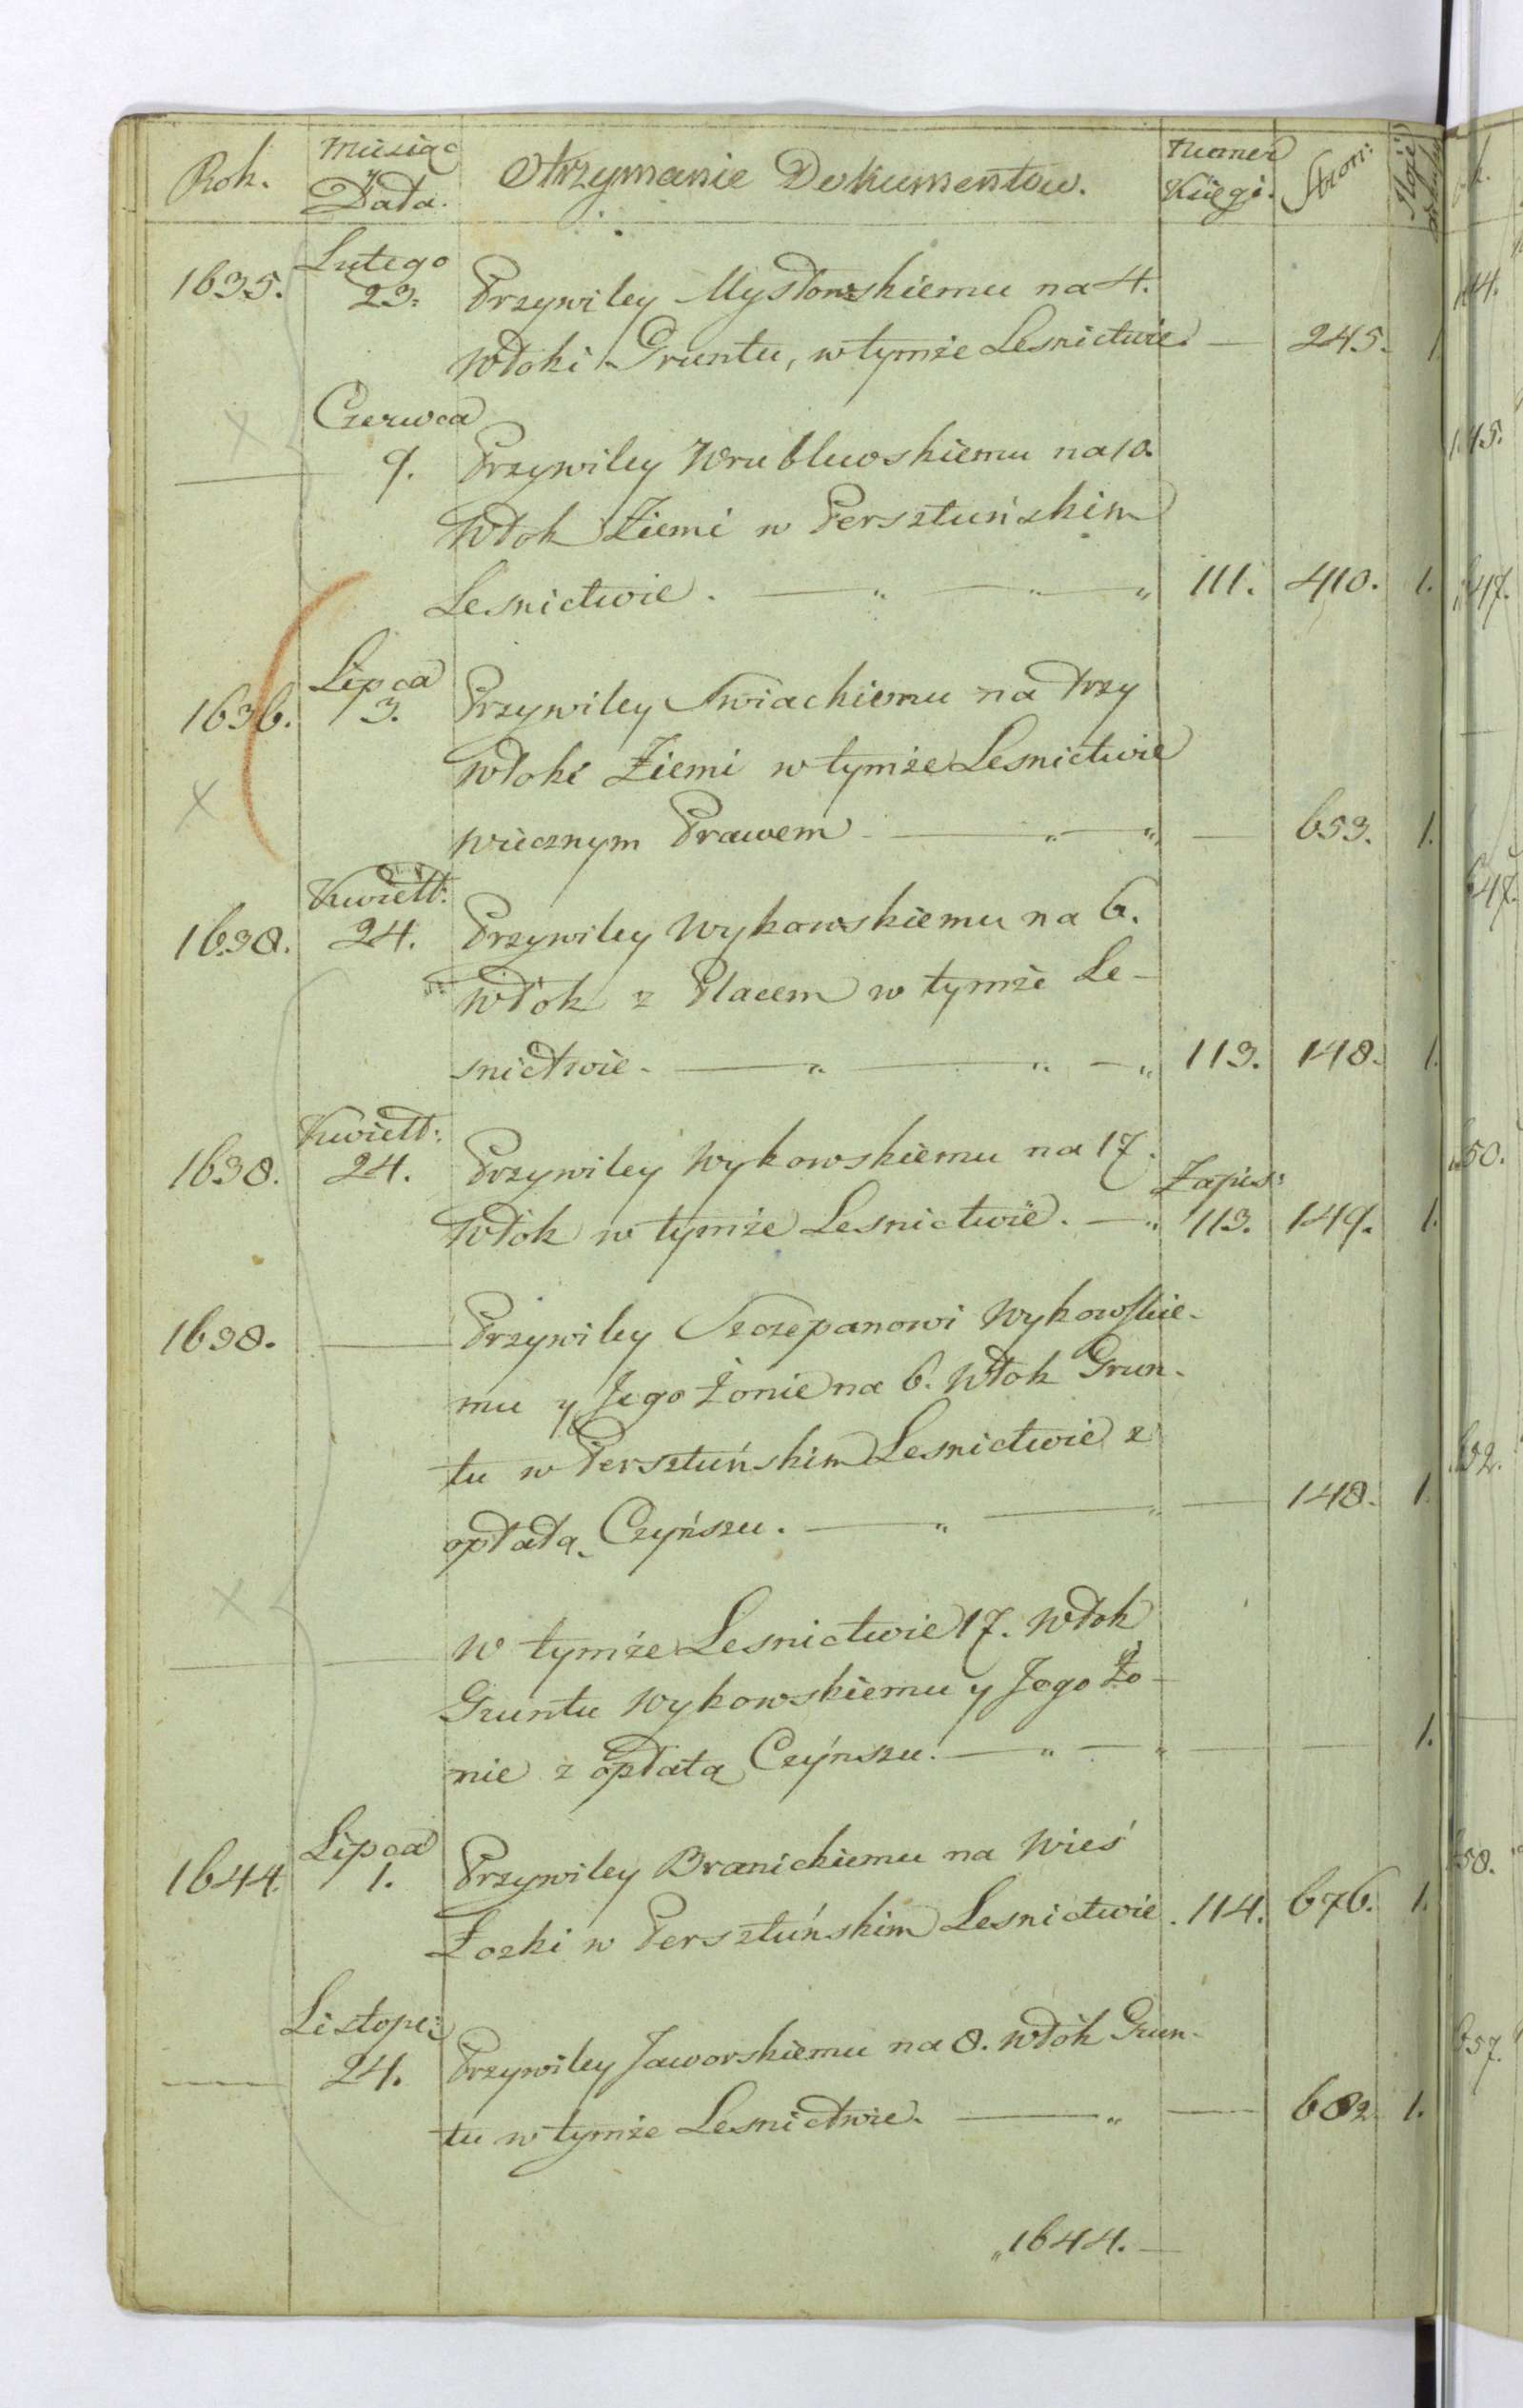 Rok. Miesiąc y Data. Otrzymanie Dokumentow. Numer Księgi. Stron: Ilość
Lutego
1635. 23. Przywiley Mysłowskiemu na 4.
Włoki Gruntu, w tymże Lesnictwie. — 245. 1
Czerwca
— 9. Przywiley Wrublewskiemu na 10.
Włok Ziemi w Persztuńskim
Lesnictwie. — " — " — " 111. 410. 1.
Lipca
1636. 3. Przywiley Swiackiemu na trzy
Włoki Ziemi w tymże Lesnictwie
wiecznym Prawem — " — " — 653. 1.
Kwiett:
1638. 24. Przywiley Wykowskiemu na 6.
Włok z Placem w tymże Le-
snictwie. — " — " — " 113. 148. 1.
Kwiett:
1638. 24. Przywiley Wykowskiemu na 17.
Zapis:
Włok w tymże Lesnictwie. — " 113. 149. 1.
1638. — Przywiley Szczepanowi Wykowskie-
mu y Jego Żonie na 6. Włok Grun-
tu w Persztuńskim Lesnictwie z
opłatą Czyńszu. — " — " — 148. 1.
— — W tymże Lesnictwie 17. Włok
Gruntu Wykowskiemu y Jego Żo-
nie z opłatą Czyńszu. — " — " — — 1.
Lipca
1644. 1. Przywiley Branickiemu na Wieś
Łozki w Persztuńskim Lesnictwie. 114. 676. 1.
Listope:
— 24. Przywiley Jaworskiemu na 8. włók Grun-
tu w tymże Lesnictwie. — " — 682. 1.
" 1644. —